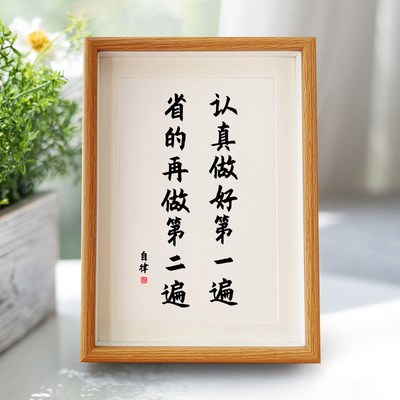 认真做好第一遍
省的再做第二遍
自律